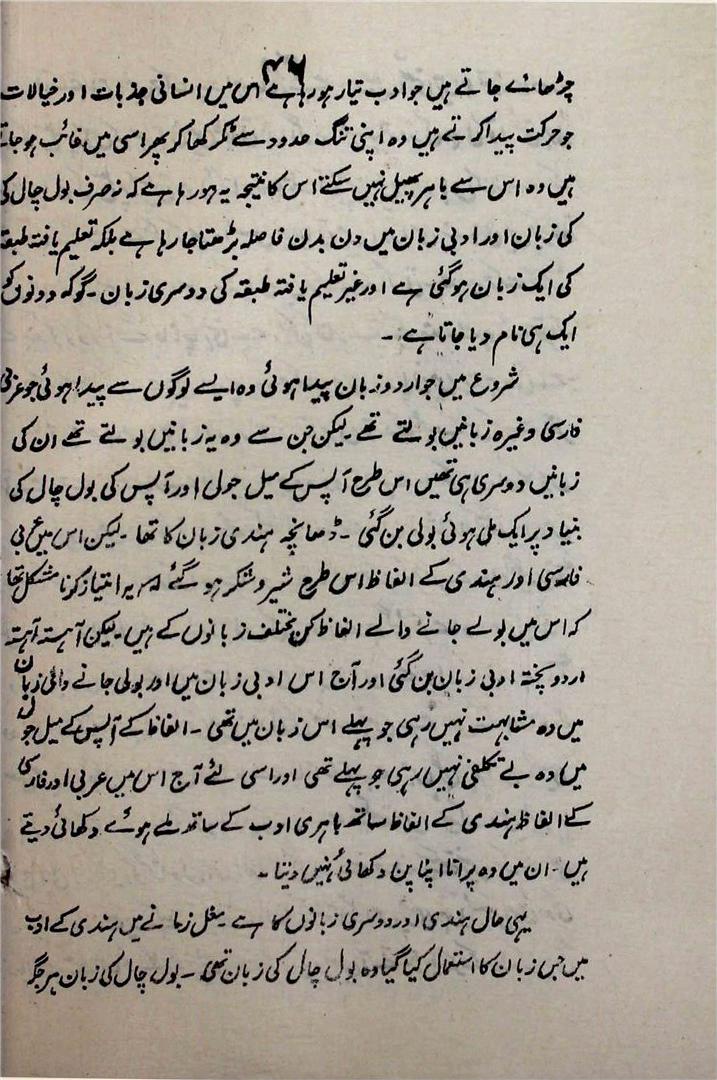 ۴۶
چڑھائے جاتے ہیں جو ادب تیار ہو رہا ہے اس میں انسانی جذبات اور خیالات
جو حرکت پیدا کرتے ہیں وہ اپنی تنگ حدود سے ٹکر کھا کر پھر اسی میں غائب ہو جاتے
ہیں وہ اس سے باہر پھیل نہیں سکتے اس کا نتیجہ یہ ہو رہا ہے کہ نہ صرف بول چال کی
کی زبان اور ادبی زبان میں دن بدن فاصلہ بڑھتا جا رہا ہے بلکہ تعلیم یافتہ طبقہ
کی ایک زبان ہو گئی ہے اور غیر تعلیم یافتہ طبقہ کی دوسری زبان ۔ گو کہ دونوں کو
ایک ہی نام دیا جاتا ہے ۔
شروع میں جو اردو زبان پیدا ہوئی وہ ایسے لوگوں سے پیدا ہوئی جو عربی
فارسی وغیرہ زبانیں بولتے تھے ۔ لیکن جن سے وہ یہ زبانیں بولتے تھے ان کی
زبانیں دوسری ہی تھیں اس طرح آپس کے میل جول اور آپس کی بول چال کی
بنیاد پر ایک ملی ہوئی بولی بن گئی ۔ ڈھانچہ ہندی زبان کا تھا ۔ لیکن اس میں عربی
فارسی اور ہندی کے الفاظ اس طرح شیر و شکر ہو گئے کہ یہ امتیاز کرنا مشکل تھا
کہ اس میں بولے جانے والے الفاظ کن مختلف زبانوں کے ہیں ۔ لیکن آہستہ آہستہ
اردو پختہ ادبی زبان بن گئی اور آج اس ادبی زبان میں اور بولی جانے والی زبان
میں وہ مشابہت نہیں رہی جو پہلے اس زبان میں تھی ۔ الفاظ کے آپس کے میل جول
میں وہ بے تکلفی نہیں رہی جو پہلے تھی اور اسی لئے آج اس میں عربی اور فارسی
کے الفاظ ہندی کے الفاظ ساتھ باہری ادب کے ساتھ ملے ہوئے دکھائی دیتے
ہیں ۔ ان میں وہ پرانا اپنا پن دکھائی نہیں دیتا ۔
یہی حال ہندی اور دوسری زبانوں کا ہے ۔ مغل زمانے میں ہندی کے ادب
میں جس زبان کا استعمال کیا گیا وہ بول چال کی زبان تھی ۔ بول چال کی زبان ہر جگہ